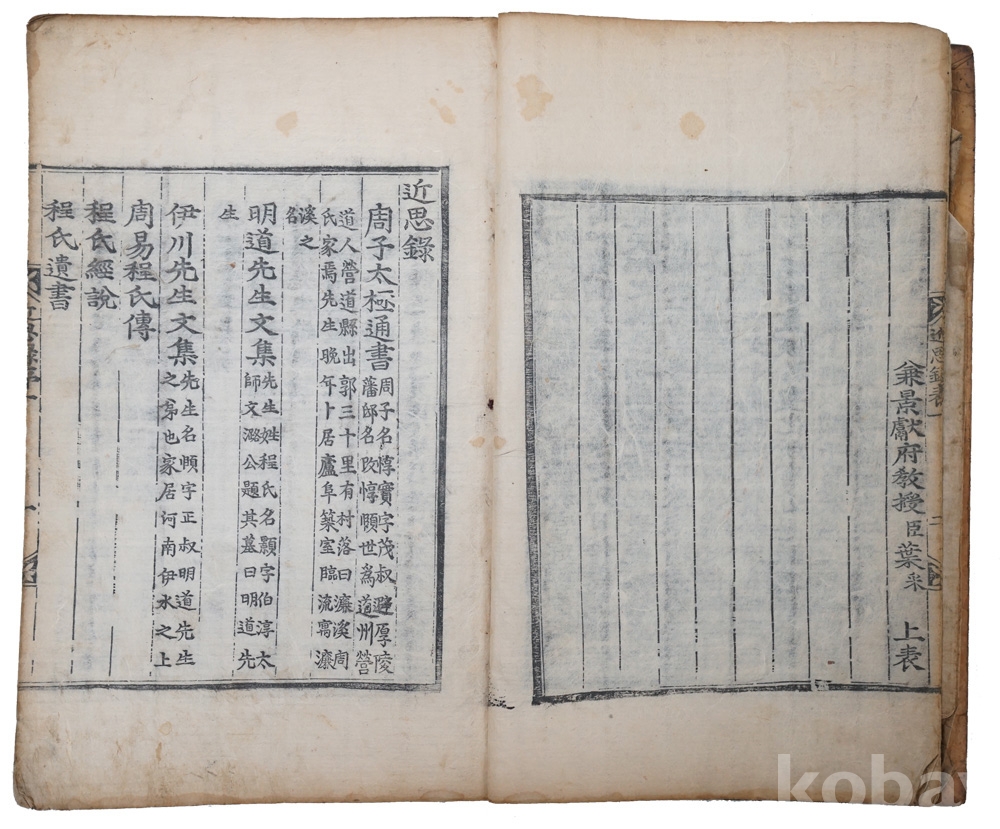 近思錄表 二
兼景獻府敎授臣葉采 上表
近思錄
周子太極通書 周子名惇實字茂叔避厚陵
藩邸名改惇頤世爲道州營
道人營道縣出郭三十里有村落曰濂溪周
氏家焉先生晚年卜居廬阜築室臨流寓濂
溪之
名
明道先生文集 先生姓程氏名顥字伯淳太
師文潞公題其墓曰明道先
生
伊川先生文集 先生名頤字正叔明道先生
之弟也家居河南伊水之上
周易程氏傳
程氏經說
程氏遺書
kobay